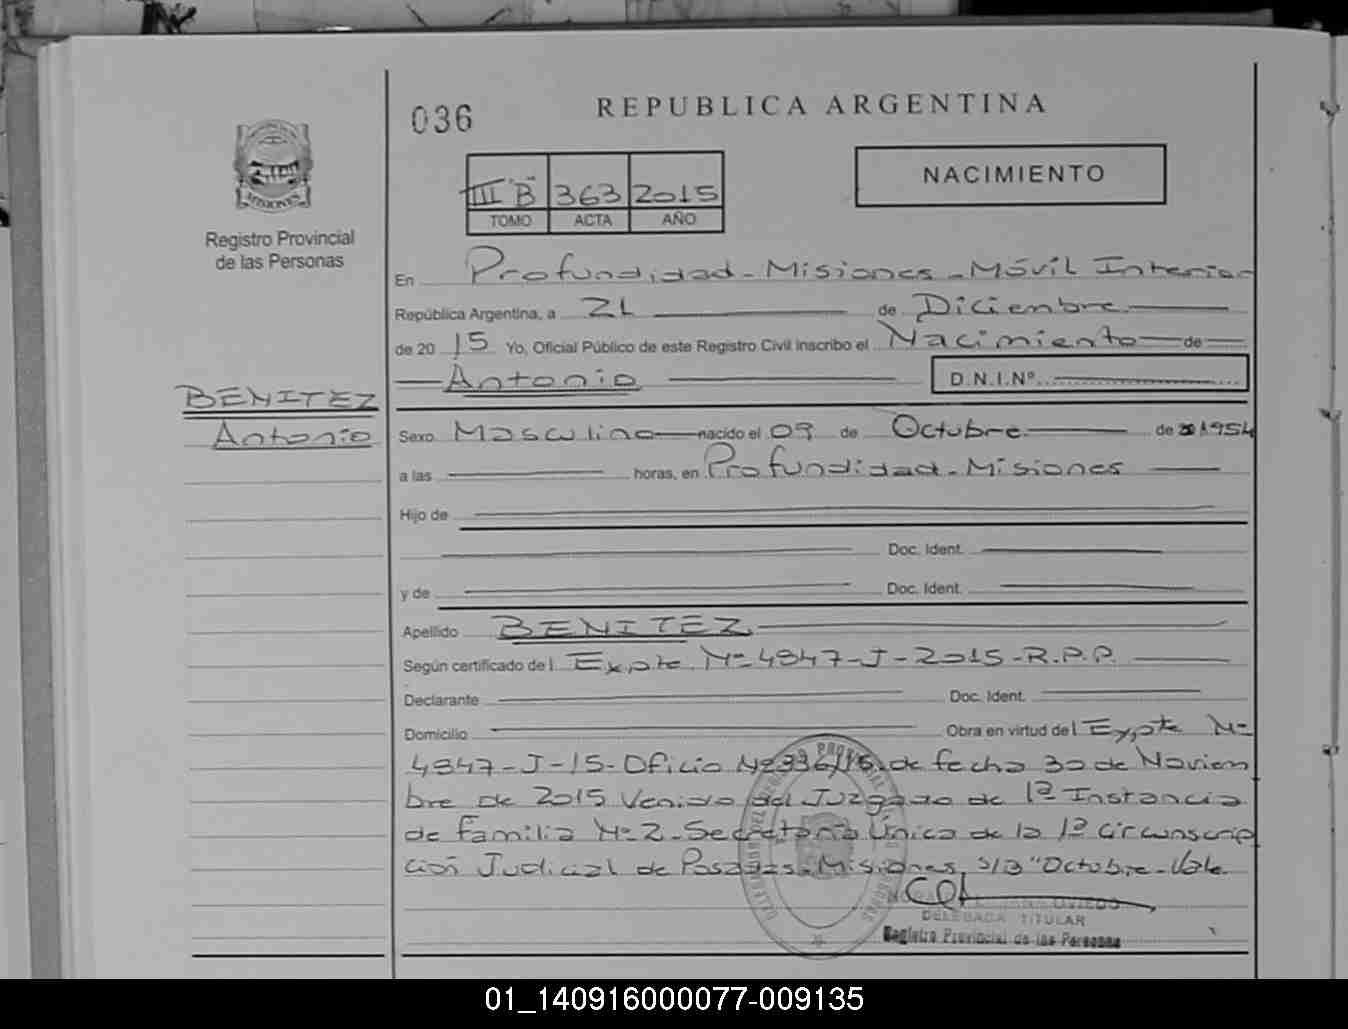 036
REPUBLICA ARGENTINA
NACIMIENTO
III "B" 363 2015
TOMO ACTA AÑO
MISIONES
Registro Provincial
de las Personas
En Profundidad - Misiones - Móvil Interior
República Argentina, a 21 de Diciembre
de 20 15 Yo, Oficial Público de este Registro Civil inscribo el Nacimiento de
Antonio D.N.I.Nº
BENITEZ
Antonio
Sexo Masculino nacido el 09 de Octubre de 1954
a las horas, en Profundidad - Misiones
Hijo de
Doc. Ident.
y de Doc. Ident.
Apellido BENITEZ
Según certificado del Expte Nº 4847-J-2015-R.P.P.
Declarante Doc. Ident.
Domicilio Obra en virtud del Expte Nº
4847-J-15-Oficio Nº 336/15 de fecha 30 de Noviem
bre de 2015 Venido del Juzgado de 1ª Instancia
de Familia Nº 2 - Secretaría Unica de la 1ª Circunscrip
ción Judicial de Posadas - Misiones, S/B "Octubre - Vale.
OVIEDO
DELEGADA TITULAR
Registro Provincial de las Personas
01_140916000077-009135